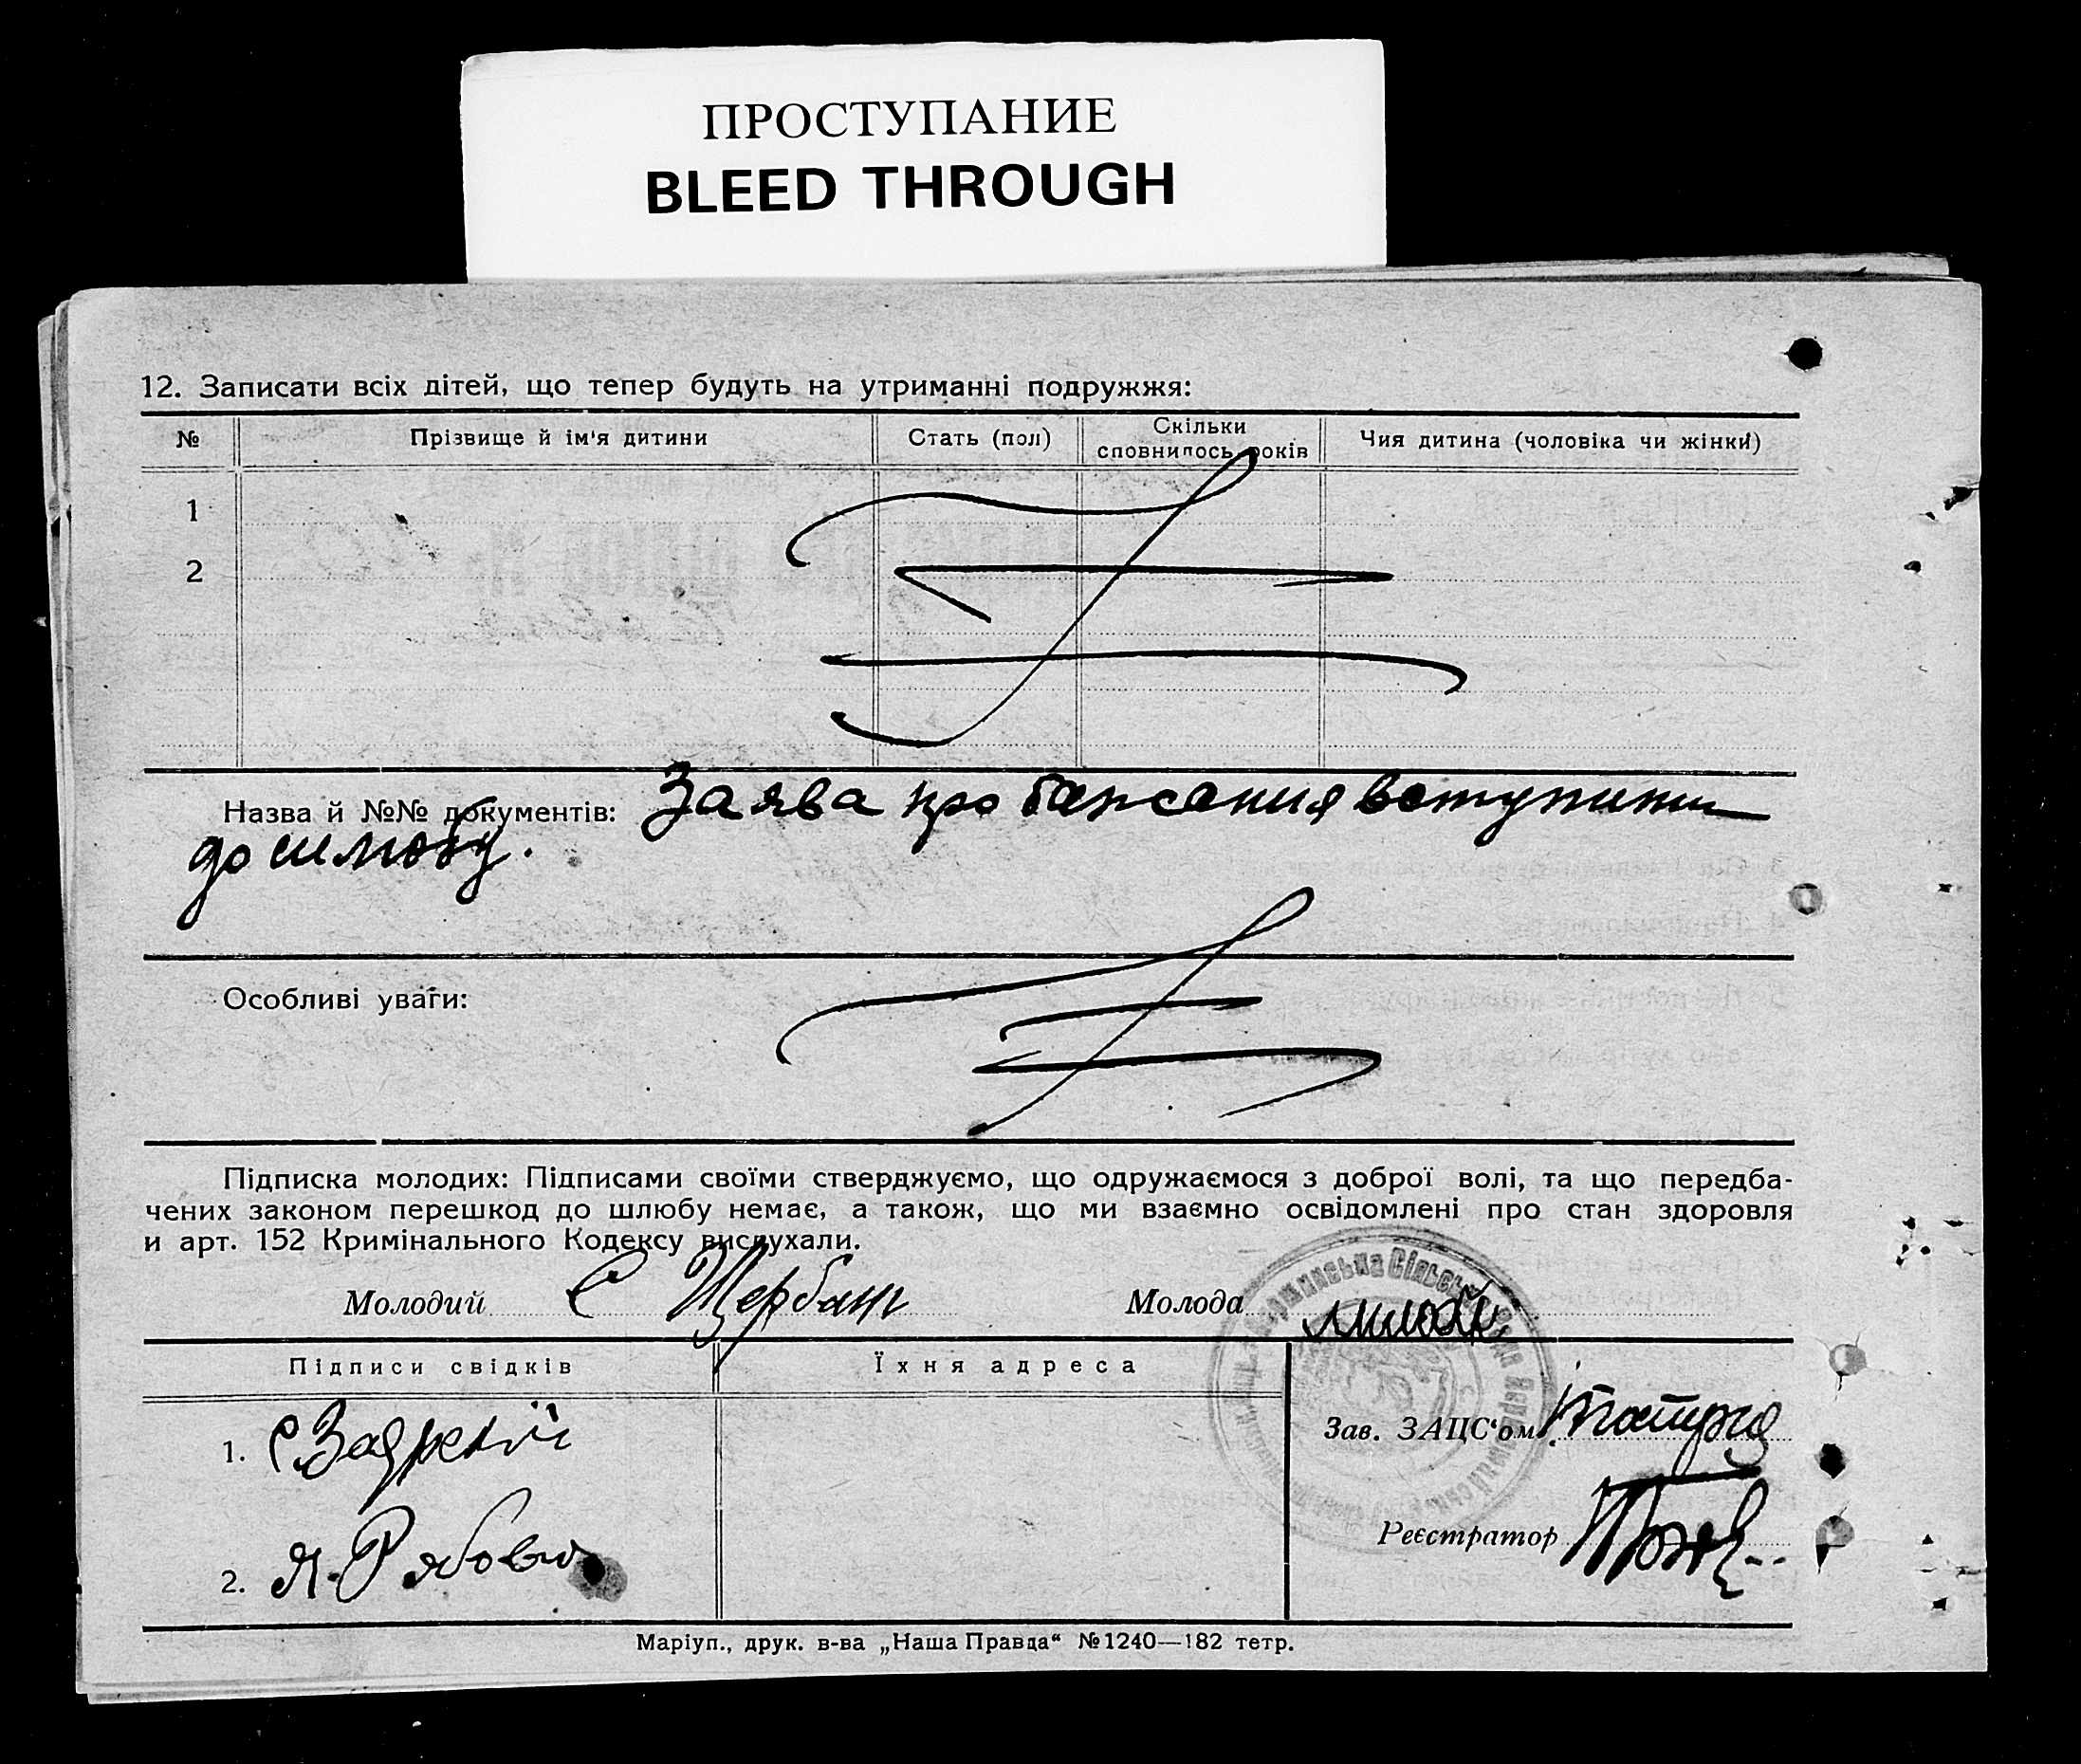 ПРОСТУПАНИЕ
BLEED THROUGH
12. Записати всіх дітей, що тепер будуть на утриманні подружжя:
№ Прізвище й ім'я дитини Стать (пол) Скільки сповнилось років Чия дитина (чоловіка чи жінки)
1
2
Назва й №№ документів: Заява про бажання вступити
до шлюбу.
Особливі уваги:
Підписка молодих: Підписами своїми стверджуємо, що одружаємося з доброї волі, та що передба-
чених законом перешкод до шлюбу немає, а також, що ми взаємно освідомлені про стан здоровля
и арт. 152 Кримінального Кодексу вислухали.
Молодий С Щербань Молода
Підписи свідків Їхня адреса
1.
Зав. ЗАЦС'ом
Реєстратор
2. Я. Рябовол
Маріуп., друк. в-ва „Наша Правда" № 1240—182 тетр.